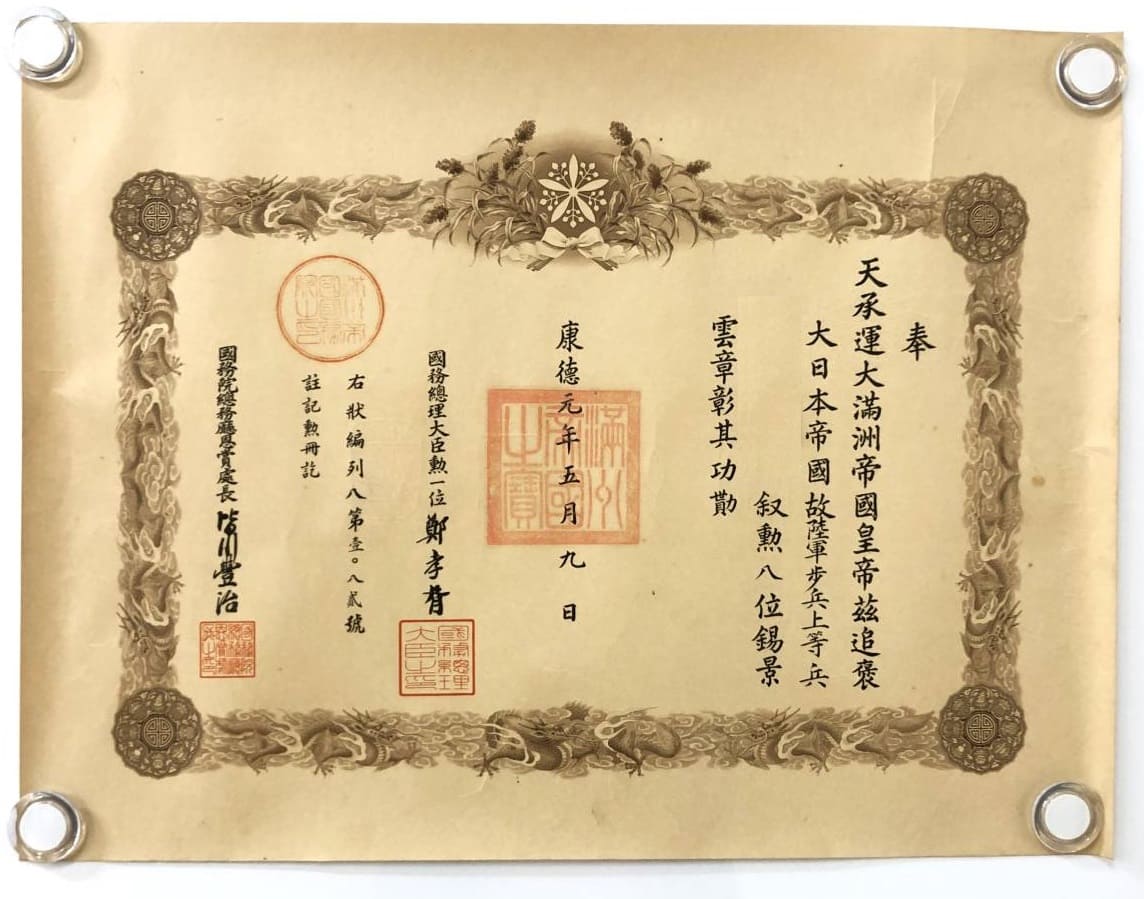 奉
天承運大滿洲帝國皇帝茲追褒
大日本帝國故陸軍步兵上等兵
叙勲八位錫景
雲章彰其功勛
康德元年五月九日
滿洲帝國之寶
國務總理大臣勲一位 鄭孝胥
國務總理大臣之印
右狀編列八第壹〇八貳號
註記勲冊訖
國務院總務廳恩賞處長 皆川豐治